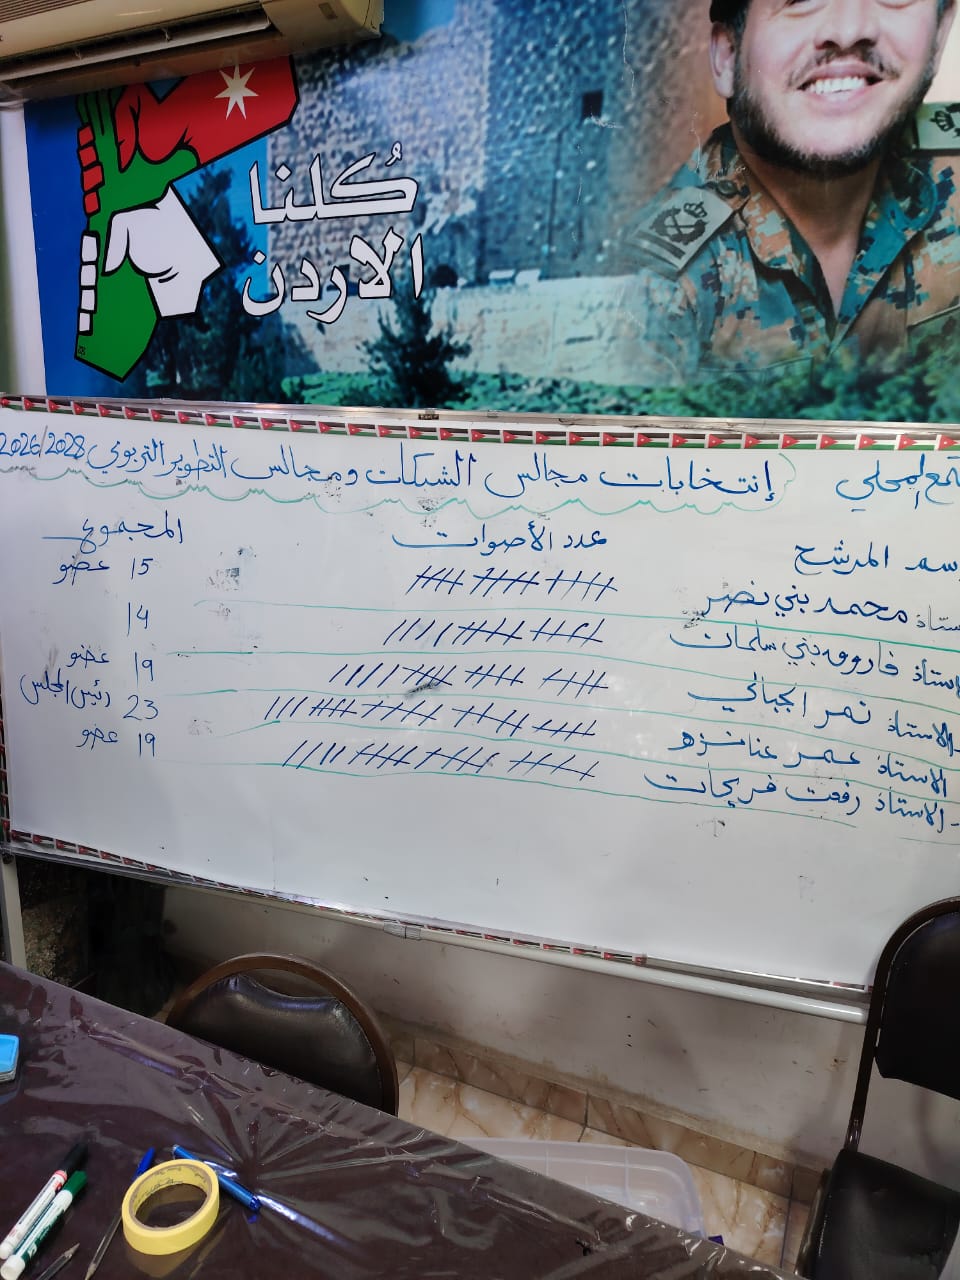 كُلنا
الاردن
إنتخابات مجالس الشبكات ومجالس التطوير التربوي 2026/2028
المحلي
المرشح عدد الأصوات المجموع
محمد بني نصر 15 عضو
فاروق بني سلمان 14
الاستاذ نمر الجبالي 19 عضو
الاستاذ عمر عنانزه 23 رئيس المجلس
- الاستاذ رفعت فريحات 19 عضو